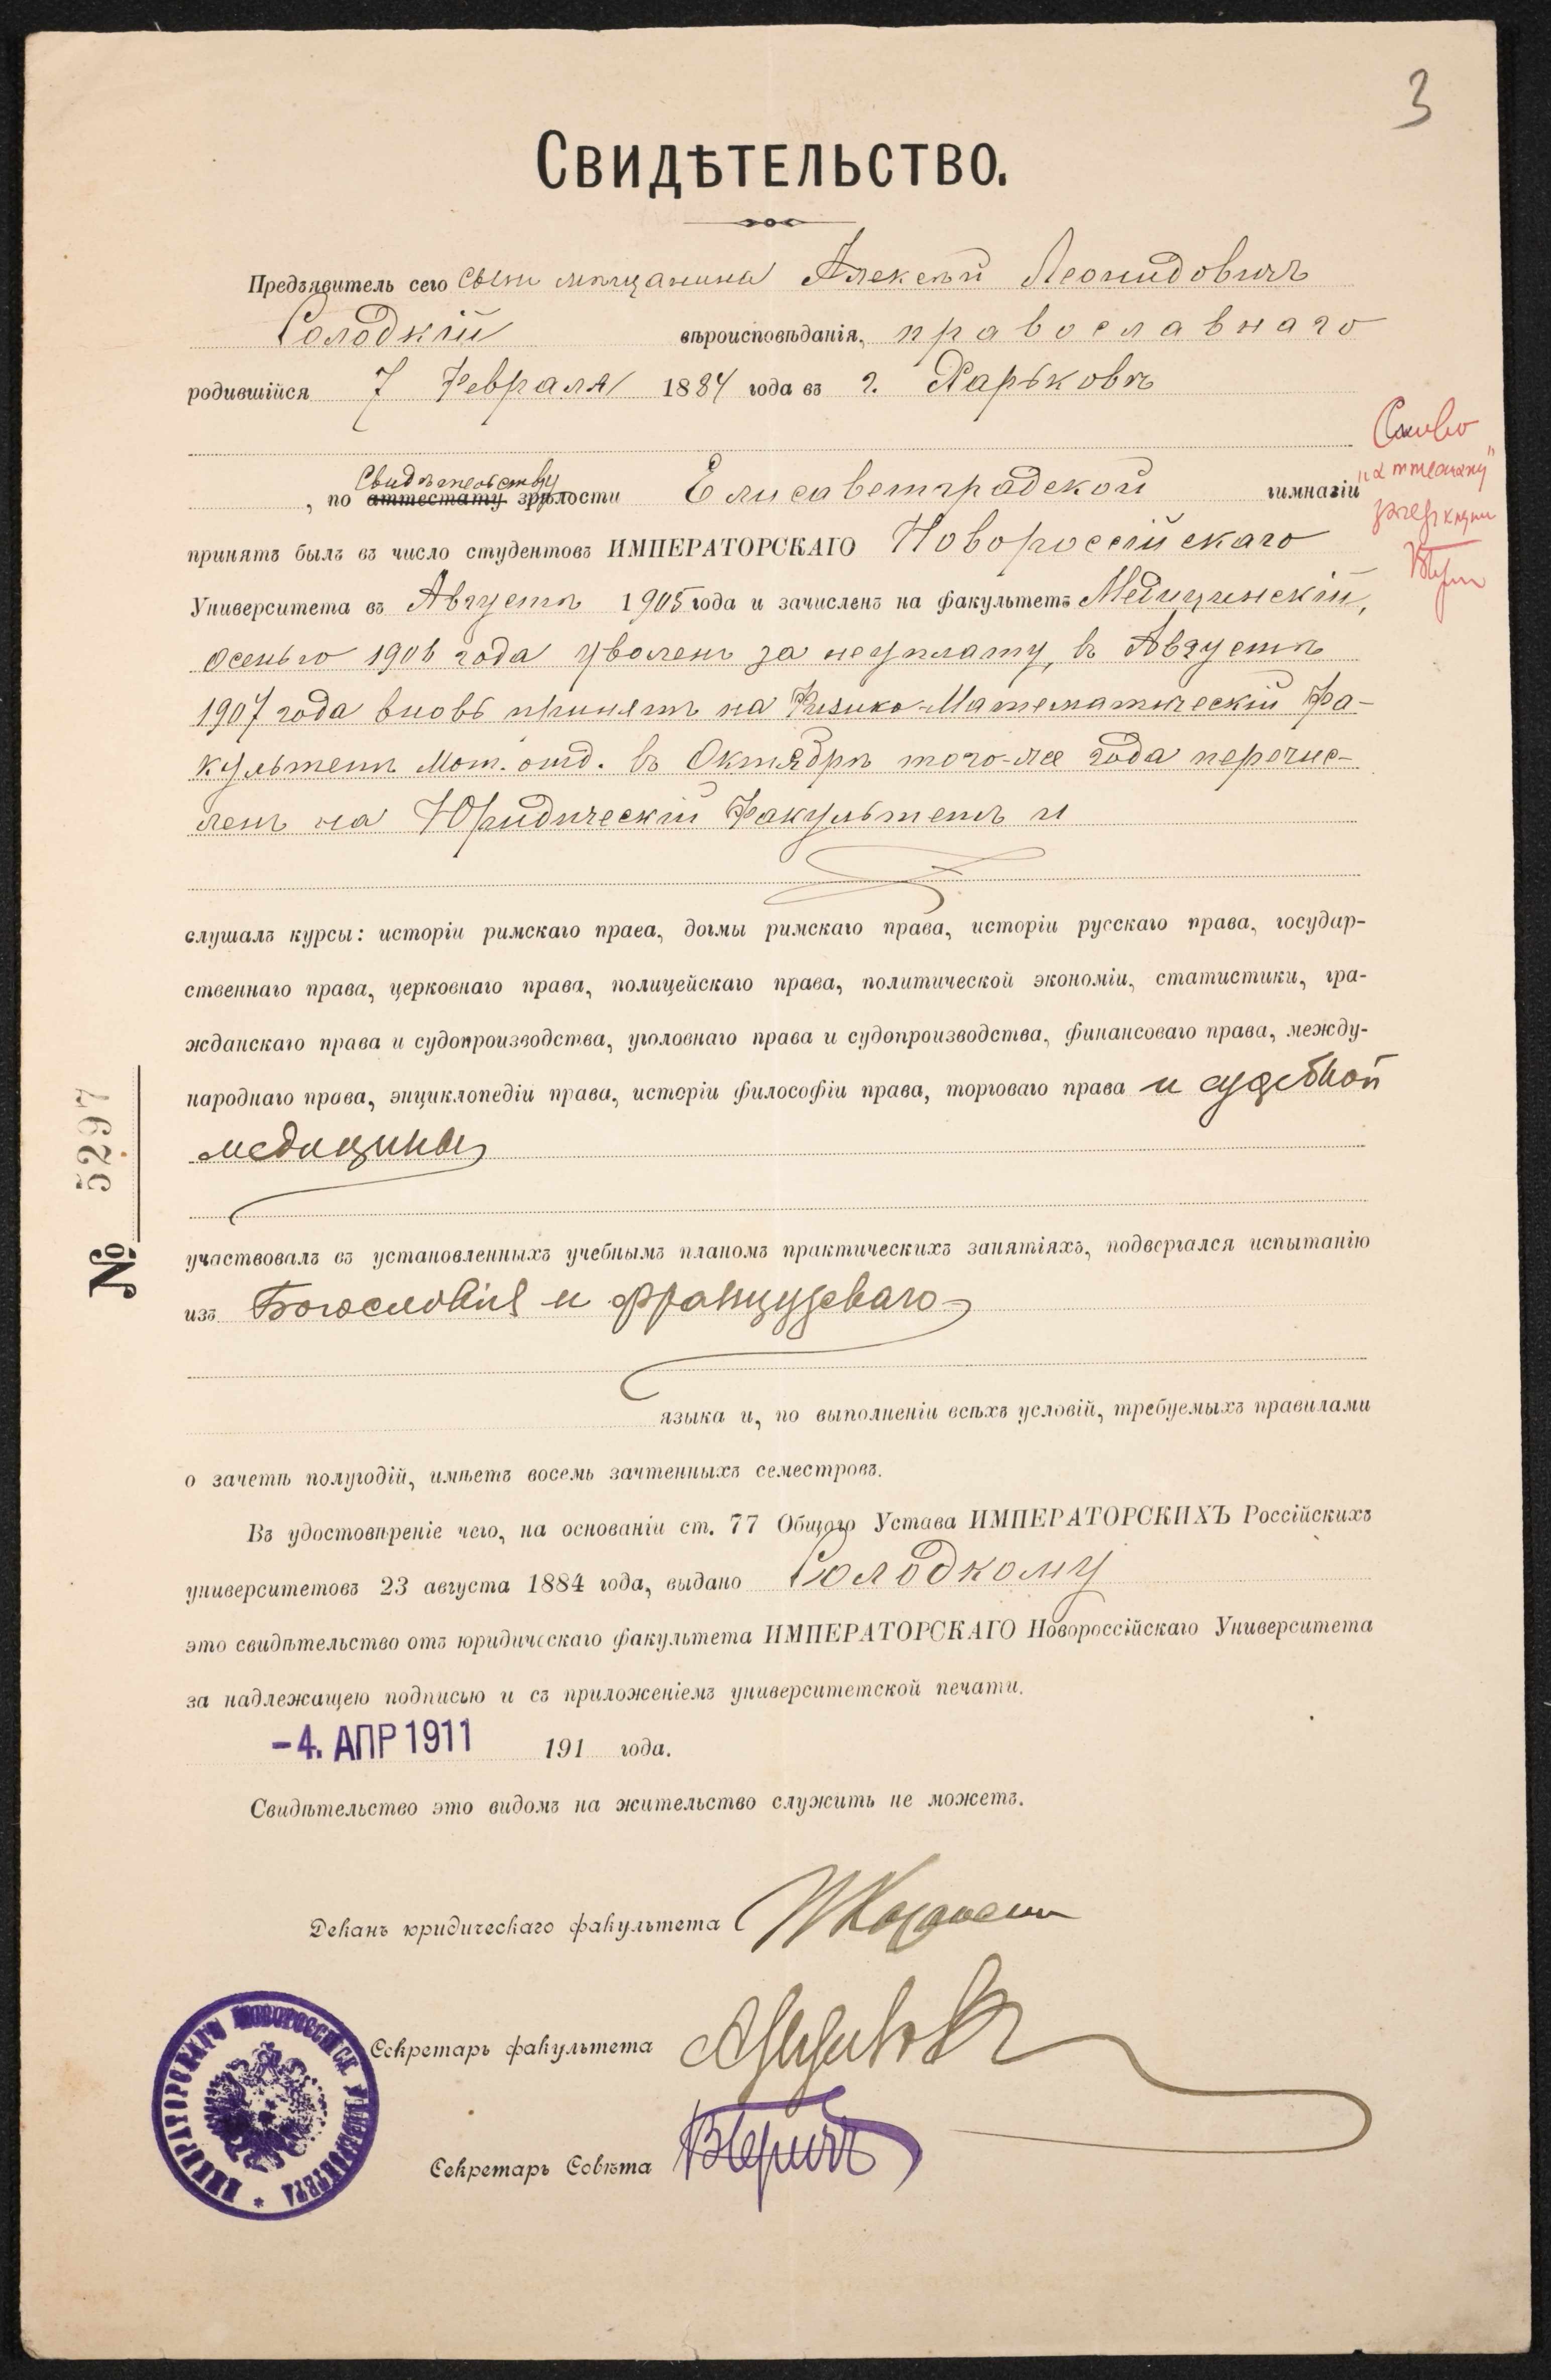 3
Свидѣтельство.
Предъявитель сего сынъ мѣщанина Алексѣй Леонидовичъ
Солодкій вѣроисповѣданія, православнаго
родившійся 7 Февраля 1884 года въ г. Харьковѣ
Свидѣтельству
, по аттестату зрѣлости Елисаветградской гимназіи
Слово
"аттестату"
зачеркнуто
принятъ былъ въ число студентовъ ИМПЕРАТОРСКАГО Новороссійскаго
Университета въ Августѣ 1905 года и зачисленъ на факультетъ Медицинскій,
осенью 1906 года уволенъ за неуплату, въ Августѣ
1907 года вновь принятъ на Физико-Математическій фа-
культетъ Мат. отд. въ Октябрѣ того-же года перечис-
ленъ на Юридическій Факультетъ и
слушалъ курсы: исторіи римскаго права, догмы римскаго права, исторіи русскаго права, государ-
ственнаго права, церковнаго права, полицейскаго права, политической экономіи, статистики, гра-
жданскаго права и судопроизводства, уголовнаго права и судопроизводства, финансоваго права, между-
народнаго права, энциклопедіи права, исторіи философіи права, торговаго права и судебной
медицины
№ 5297
участвовалъ въ установленныхъ учебнымъ планомъ практическихъ занятіяхъ, подвергался испытанію
изъ Богословія и французскаго
языка и, по выполненіи всѣхъ условій, требуемыхъ правилами
о зачетѣ полугодій, имѣетъ восемь зачтенныхъ семестровъ.
Въ удостовѣреніе чего, на основаніи ст. 77 Общаго Устава ИМПЕРАТОРСКИХЪ Россійскихъ
университетовъ 23 августа 1884 года, выдано Солодкому
это свидѣтельство отъ юридическаго факультета ИМПЕРАТОРСКАГО Новороссійскаго Университета
за надлежащею подписью и съ приложеніемъ университетской печати.
-4. АПР 1911 191 года.
Свидѣтельство это видомъ на жительство служить не можетъ.
Деканъ юридическаго факультета
Секретарь факультета
Секретарь Совѣта
ИМПЕРАТОРСКАГО НОВОРОССІЙСК. УНИВЕРСИТЕТА